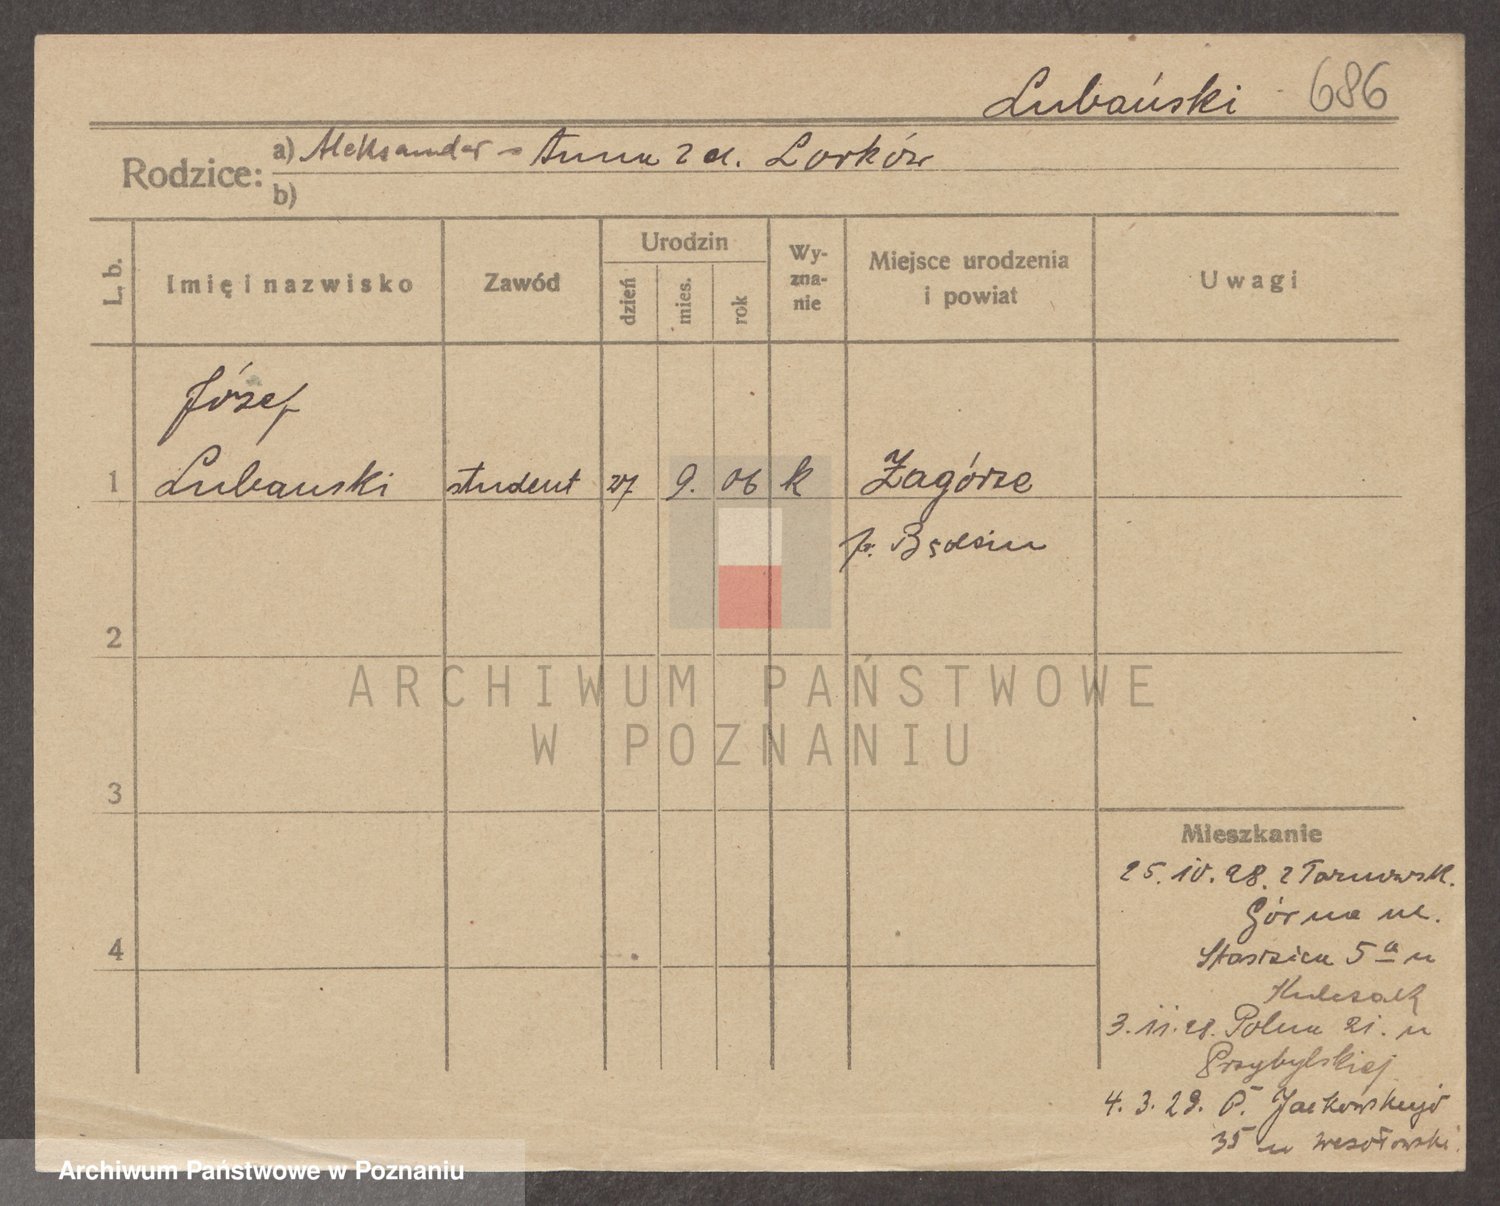 Lubański 686
Rodzice: a) Aleksander - Anna z d. Lorków
b)
L. b.
Imię i nazwisko
Zawód
Urodzin
dzień
mies.
rok
Wy-
zna-
nie
Miejsce urodzenia
i powiat
Uwagi
Józef
1 Lubauski student 27 9. 06 k Zagórze
p. Będzin
2
3
4
ARCHIWUM PAŃSTWOWE
W POZNANIU
Mieszkanie
25. 10. 28. z Tarnowsk.
Górna ul.
Staszica 5 a u
3. 11. 28. Polna 21. u
Przybylskiej
4. 3. 29. P. Jackowskiego
35 u Wesołowski.
Archiwum Państwowe w Poznaniu